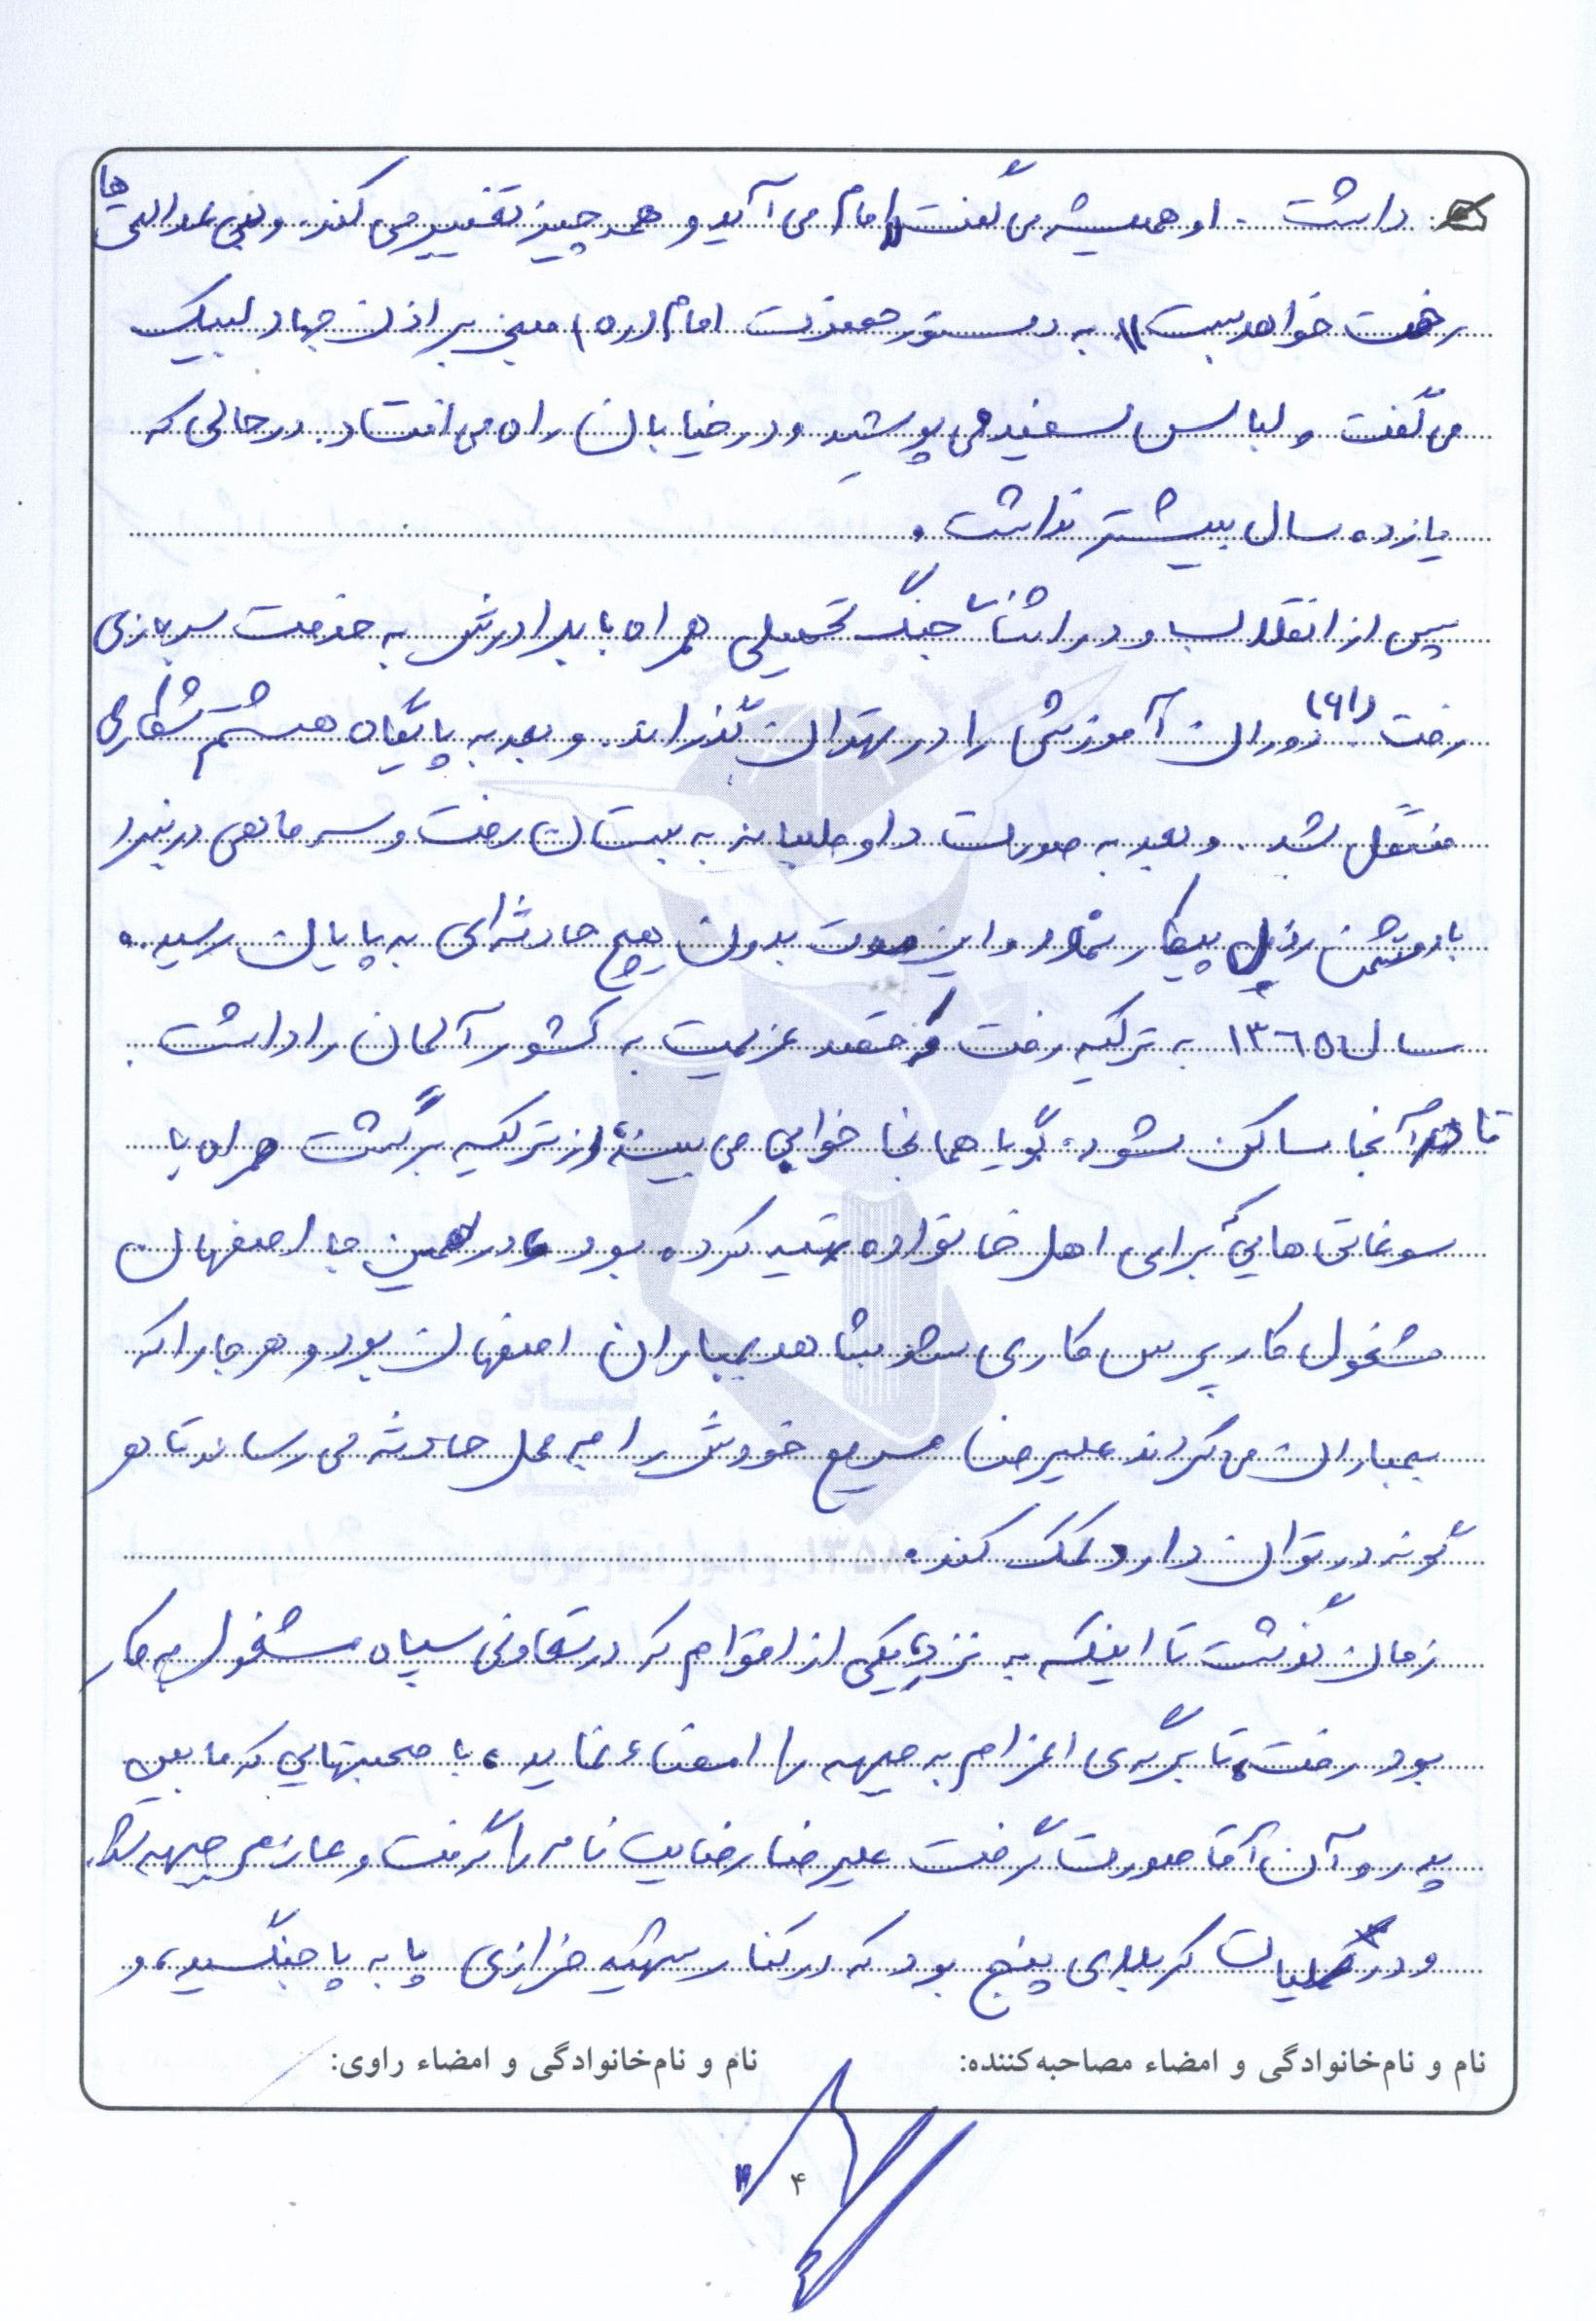 داشت . او همیشه می گفت «امام می آید و همه چیز تغییر می کند. و بی عدالتی ها
رخت خواهد بست» به دستور حضرت امام (ره) مبنی بر اذن جهاد لبیک
می گفت و لباس سفید می پوشید و در خیابان راه می افتاد. در حالی که
یازده سال بیشتر نداشت.
پس از انقلاب و در اثنا جنگ تحمیلی همراه با برادرش به خدمت سربازی
رفت (۶۱) دوران آموزشی را در تهران گذراند. و بعد به پایگاه هشتم شکاری
منتقل شد. و بعد به صورت داوطلبانه به بستان رفت و سه ماهی در نبرد
با دشمن رذیل پیکار نمود و این مدت بدون هیچ حادثه ای به پایان رسید.
سال ۱۳۶۵ به ترکیه رفت قصد عزیمت به کشور آلمان را داشت.
تا در آنجا ساکن شود. گویا همانجا خوابی می بیند، از ترکیه برگشت همراه با
سوغاتی هایی که برای اهل خانواده تهیه کرده بود و در همین جا اصفهان
مشغول کار پرس کاری شد شاهد بمباران اصفهان بود و هر جا را که
بمباران می کردند علیرضا سریع خودش را به محل حادثه می رساند تا هر
گونه در توان دارد کمک کند.
زمان گذشت تا اینکه به نزد یکی از اقوام که در تعاونی سپاه مشغول به کار
بود رفت، تا برگه ی اعزام به جبهه را امضاء نماید، با صحبتهایی که ما بین
پدر و آن آقا صورت گرفت علیرضا رضایت نامه را گرفت و عازم جبهه شد.
و در عملیات کربلای پنج بود که در کنار شهید خرازی پا به پا جنگید، و
نام و نام‌خانوادگی و امضاء مصاحبه‌کننده: نام و نام‌خانوادگی و امضاء راوی:
۴